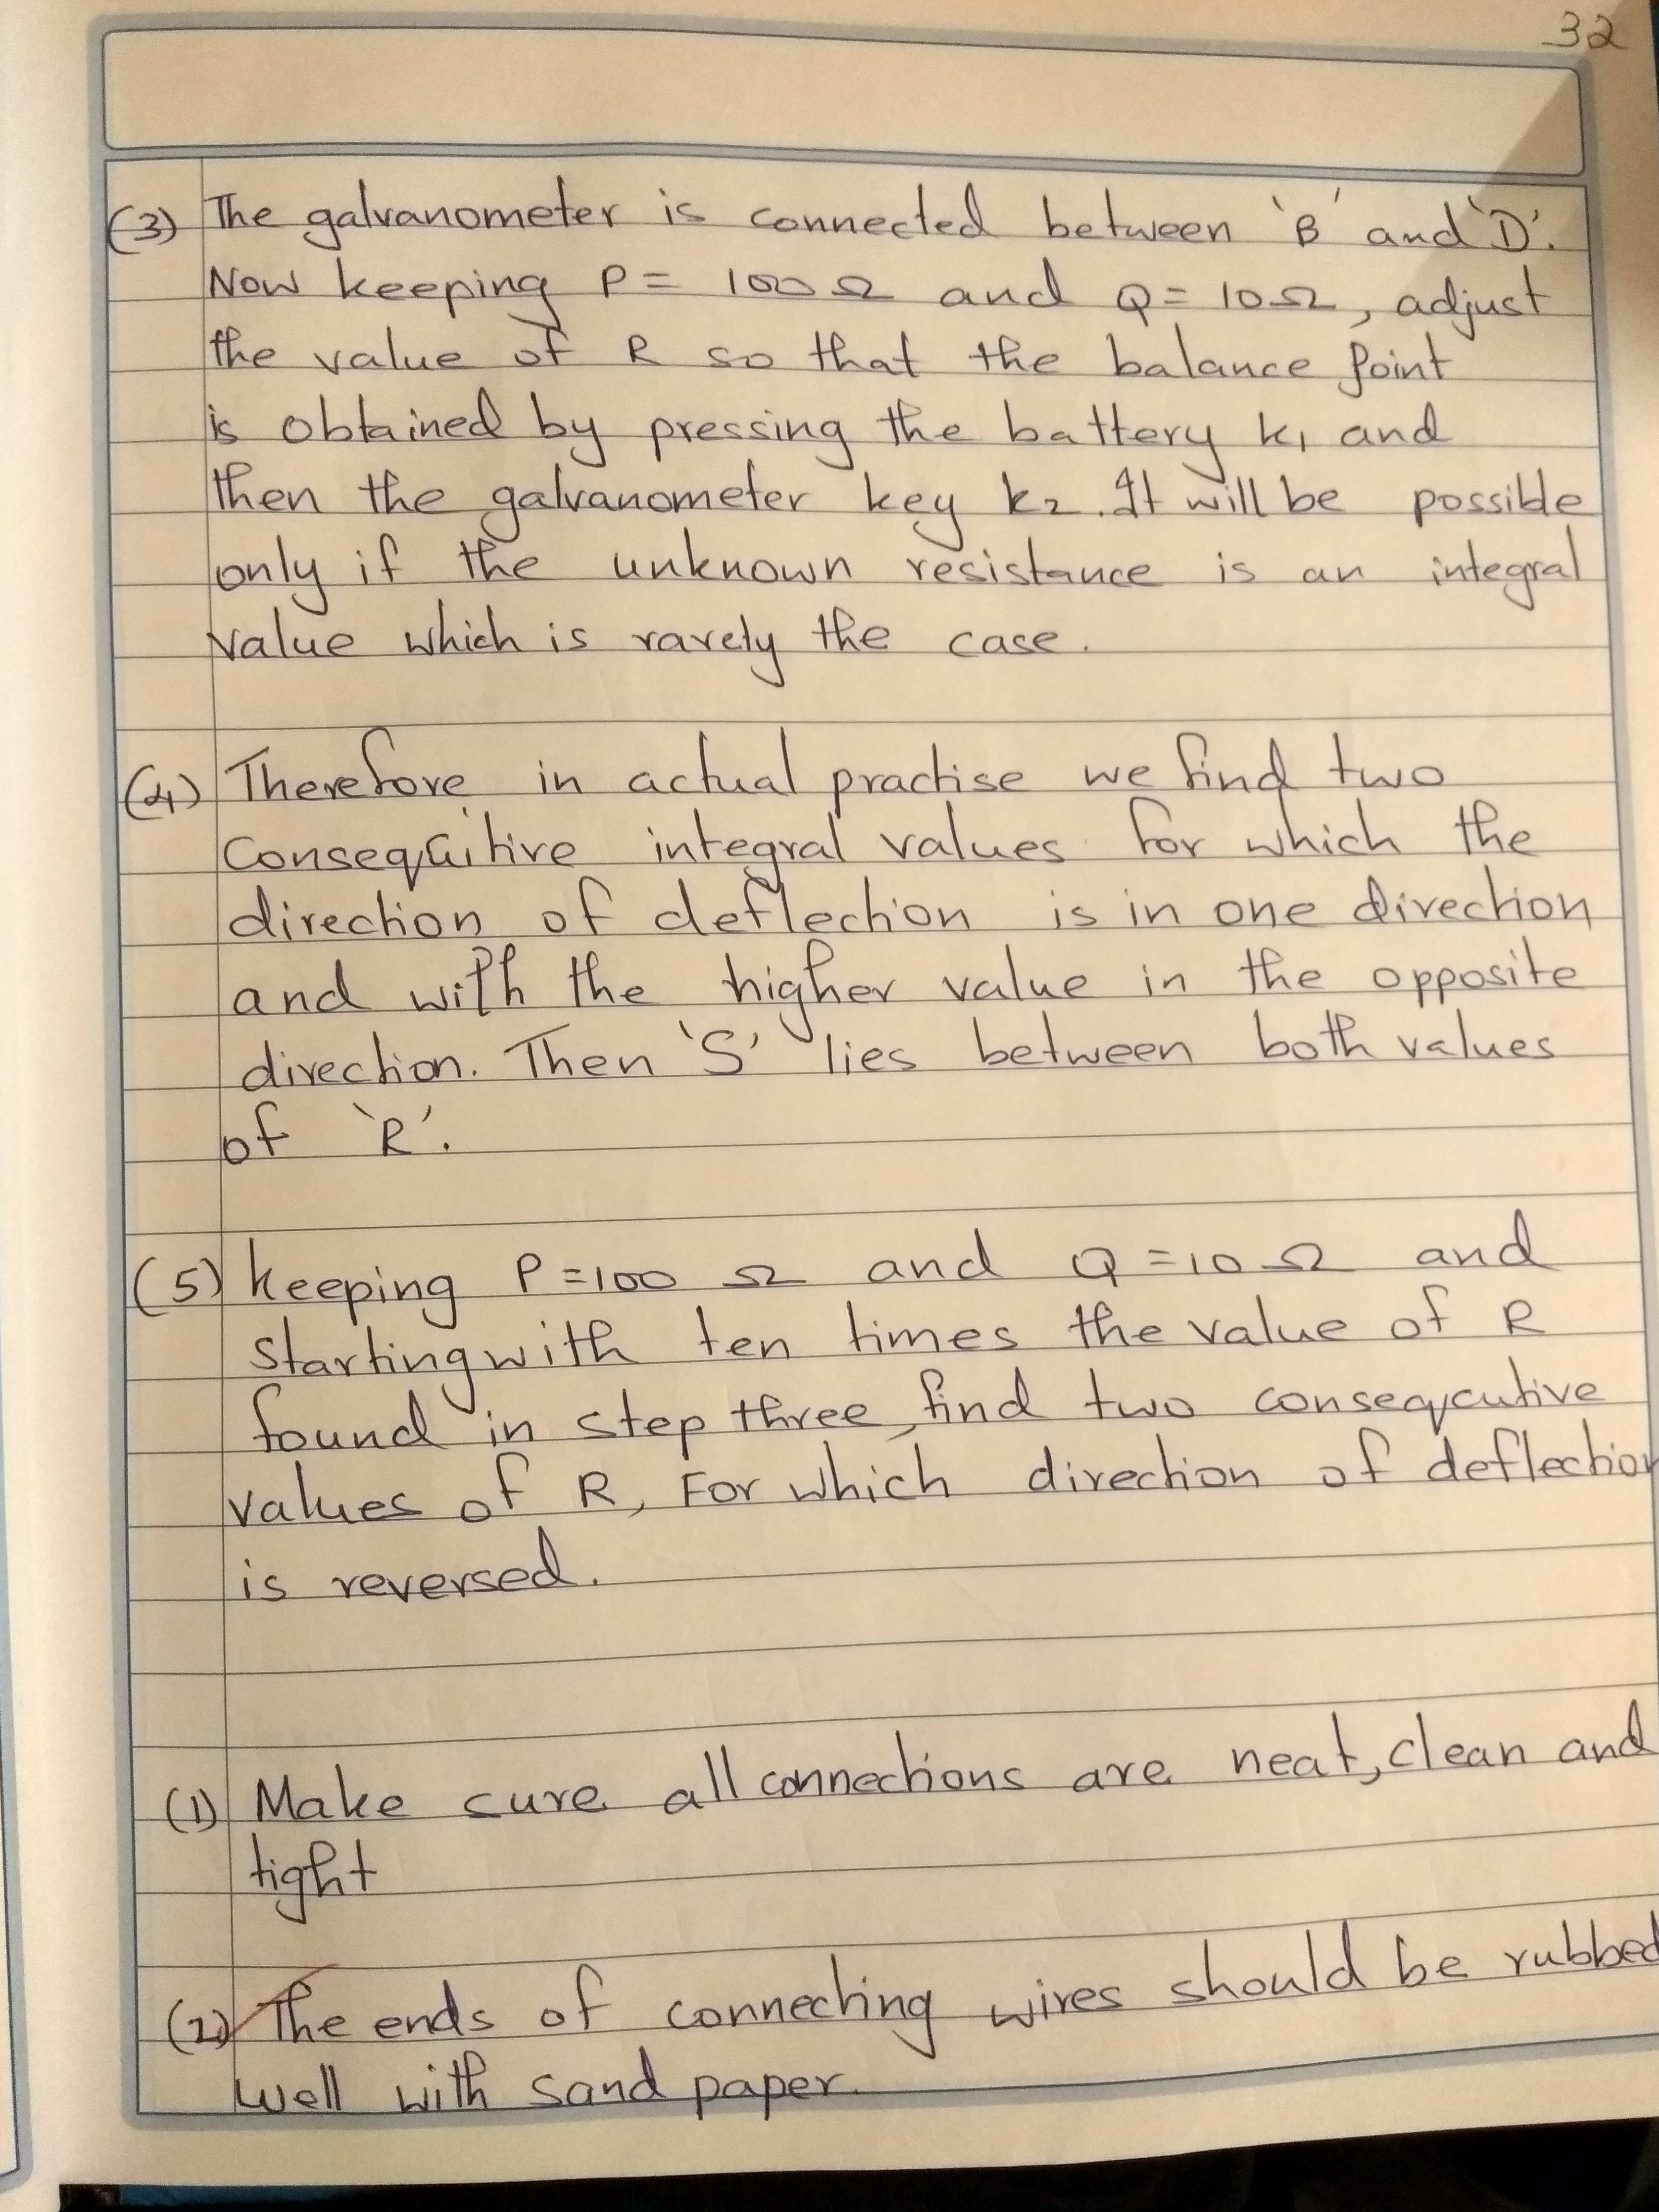 32
(3) The galvanometer is connected between 'B' and 'D'.
Now keeping P = 100 Ω and Q = 10 Ω, adjust
the value of R so that the balance point
is obtained by pressing the battery K1 and
then the galvanometer key K2. It will be possible
only if the unknown resistance is an integral
value which is rarely the case.
(4) Therefore in actual practise we find two
Consequitive integral values for which the
direction of deflection is in one direction
and with the higher value in the opposite
direction. Then 'S' lies between both values
of 'R'.
(5) keeping P = 100 Ω and Q = 10 Ω and
starting with ten times the value of R
found in step three, find two conseqcutive
values of R, For which direction of deflection
is reversed.
(1) Make sure all connections are neat, clean and
tight
(2) The ends of connecting wires should be rubbed
well with sand paper.